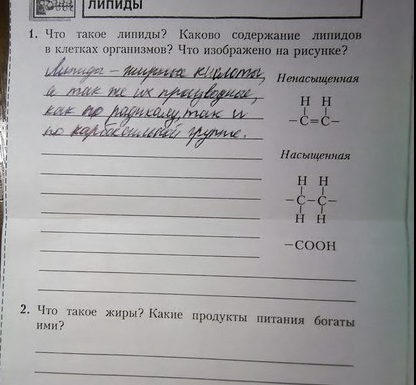 ЛИПИДЫ
1. Что такое липиды? Каково содержание липидов
в клетках организмов? Что изображено на рисунке?
Липиды – жирные кислоты,
а так же их производные,
как по радикалу, так и
по карбоксильной группе.
Ненасыщенная
H H
–C=C–
Насыщенная
H H
–C–C–
H H
–COOH
2. Что такое жиры? Какие продукты питания богаты
ими?